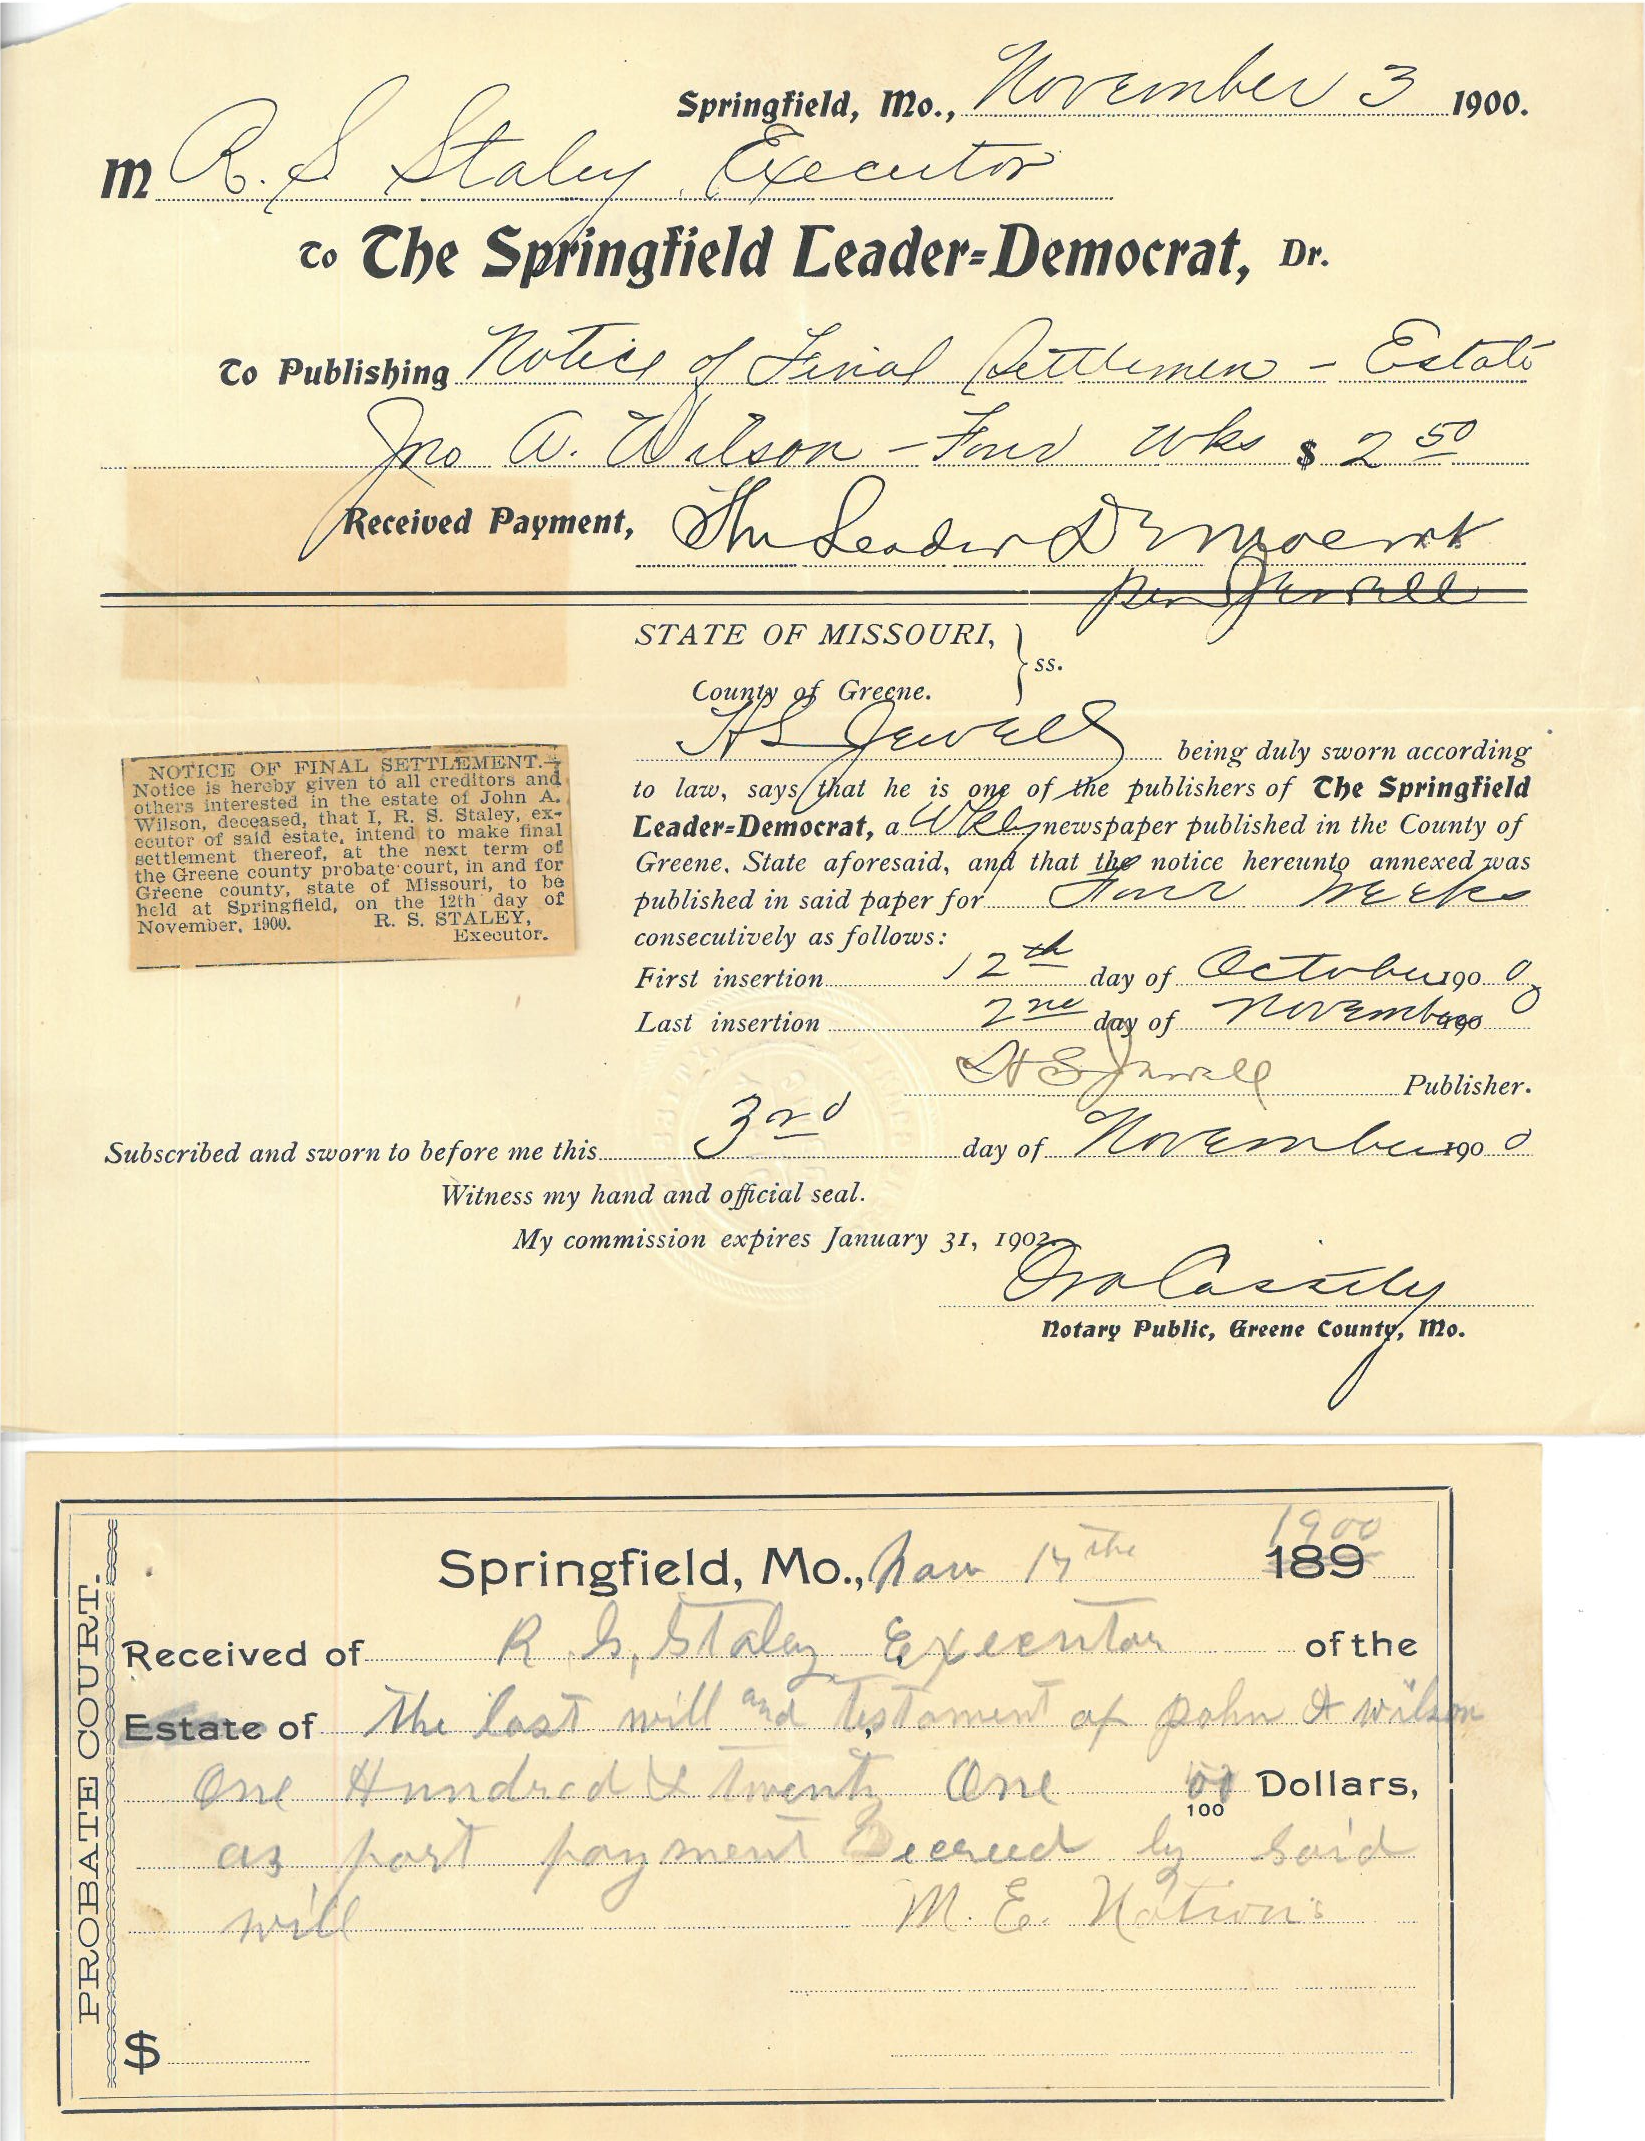 Springfield, Mo., November 3 1900.
M R. S Staley Executor
To The Springfield Leader=Democrat, Dr.
To Publishing Notice of Final Settlemen - Estate
Jno A. Wilson - Four Wks $ 2 50
Received Payment, The Leader Democrat
per Jewell
STATE OF MISSOURI,
ss.
County of Greene.
H S Jewell being duly sworn according
to law, says that he is one of the publishers of The Springfield
Leader=Democrat, a Wkly newspaper published in the County of
Greene, State aforesaid, and that the notice hereunto annexed was
published in said paper for Four Weeks
consecutively as follows:
First insertion 12th day of October 1900
Last insertion 2nd day of November 1900
H S Jewell Publisher.
NOTICE OF FINAL SETTLEMENT.—
Notice is hereby given to all creditors and
others interested in the estate of John A.
Wilson, deceased, that I, R. S. Staley, ex-
ecutor of said estate, intend to make final
settlement thereof, at the next term of
the Greene county probate court, in and for
Greene county, state of Missouri, to be
held at Springfield, on the 12th day of
November, 1900. R. S. STALEY,
Executor.
Subscribed and sworn to before me this 3rd day of November 1900
Witness my hand and official seal.
My commission expires January 31, 1902.
Cassily
Notary Public, Greene County, Mo.
PROBATE COURT.
1900
Springfield, Mo., 17the 189
Received of R. S. Staley Executor of the
Estate of the last will and testament of John A wilson
One Hundred & twenty One 00/100 Dollars,
as part payment Decreed by Said
will M. E. Nations
$